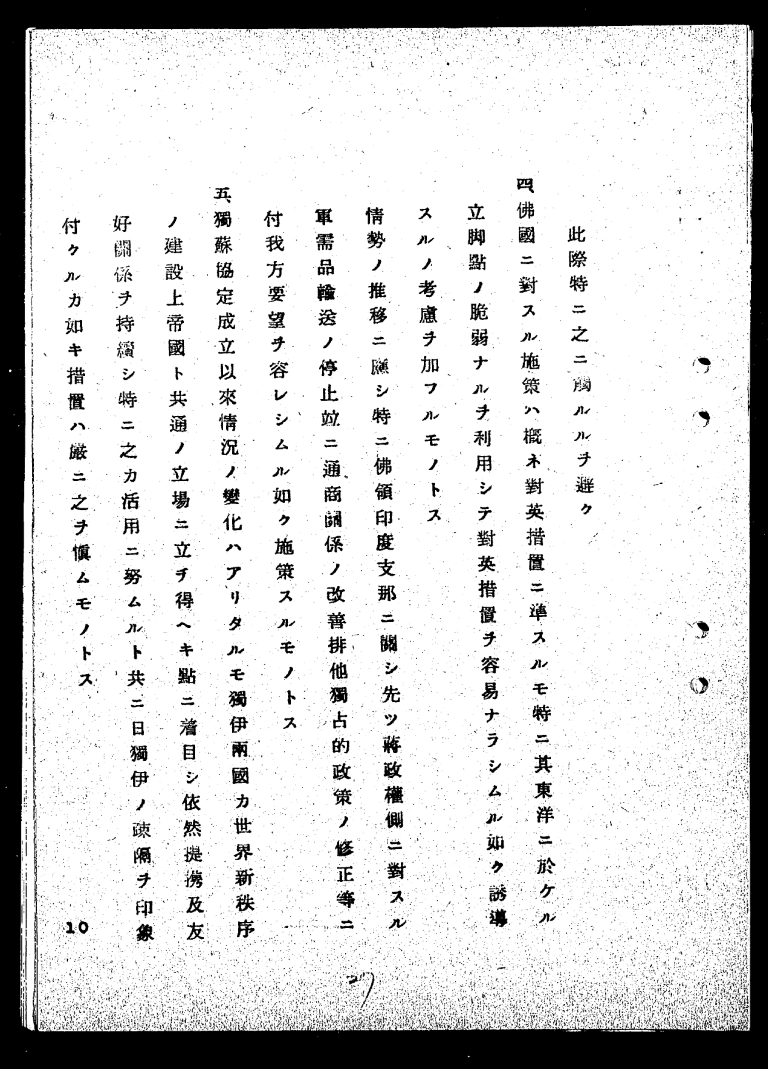 此際特ニ之ニ觸ルルヲ避ク
四、佛國ニ對スル施策ハ概ネ對英措置ニ準スルモ特ニ其東洋ニ於ケル
立脚點ノ脆弱ナルヲ利用シテ對英措置ヲ容易ナラシムル如ク誘導
スルノ考慮ヲ加フルモノトス
情勢ノ推移ニ應シ特ニ佛領印度支那ニ關シ先ツ蔣政權側ニ對スル
軍需品輸送ノ停止竝ニ通商關係ノ改善排他獨占的政策ノ修正等ニ
付我方要望ヲ容レシムル如ク施策スルモノトス
五、獨蘇協定成立以來情況ノ變化ハアリタルモ獨伊兩國カ世界新秩序
ノ建設上帝國ト共通ノ立場ニ立チ得ヘキ點ニ着目シ依然提携及友
好關係ヲ持續シ特ニ之カ活用ニ努ムルト共ニ日獨伊ノ疎隔ヲ印象
付クルカ如キ措置ハ嚴ニ之ヲ愼ムモノトス
10